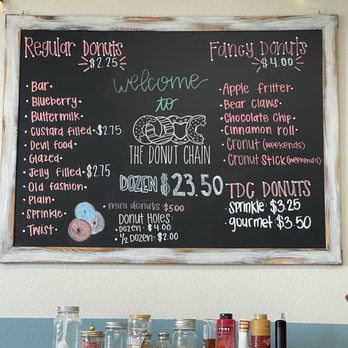 Regular Donuts
$2.25
• Bar
• Blueberry
• Buttermilk
• Custard filled • $2.75
• Devil food
• Glazed
• Jelly filled • $2.75
• Old fashion
• Plain
• Sprinkle
• Twist
welcome
to
TDC
THE DONUT CHAIN
DOZEN $23.50
mini donuts: $5.00
Donut Holes
• Dozen: $4.00
• 1/2 Dozen: $2.00
Fancy Donuts
$4.00
• Apple fritter
• Bear claws
• Chocolate Chip
• Cinnamon roll
• Cronut (weekends)
• Cronut Stick (weekends)
TDC DONUTS
Sprinkle: $3.25
gourmet $3.50